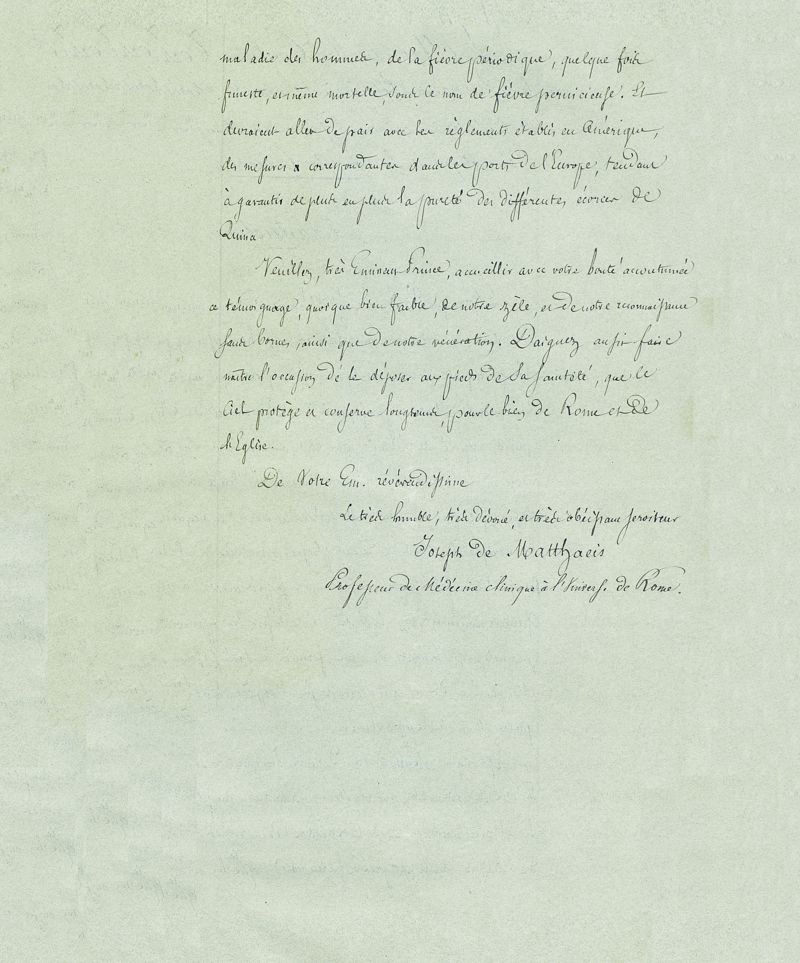 maladie des hommes, de la fièvre périodique, quelque fois
funeste, et même mortelle, sous le nom de fièvre pernicieuse. Et
devraient aller de pair avec les règlements établis en Amérique,
des mesures correspondantes dans les ports de l'Europe, tendant
à garantir de plus en plus la pureté des différentes écorces de
Quina.
Veuillez, très Eminent Prince, accueillir avec votre bonté accoutumée
ce témoignage, quoique bien faible, de notre zèle, et de notre reconnaissance
sans bornes, ainsi que de notre vénération. Daignez aussi faire
naître l'occasion dé le déposer aux pieds de Sa Sainteté, que le
Ciel protège et conserve longtems, pour le bien de Rome et de
l'Eglise.
De Votre Em. révérendissime
Le très humble, très dévoué, et très obéissant serviteur
Joseph de Matthaeis
Professeur de Médécine clinique à l'Univers. de Rome.